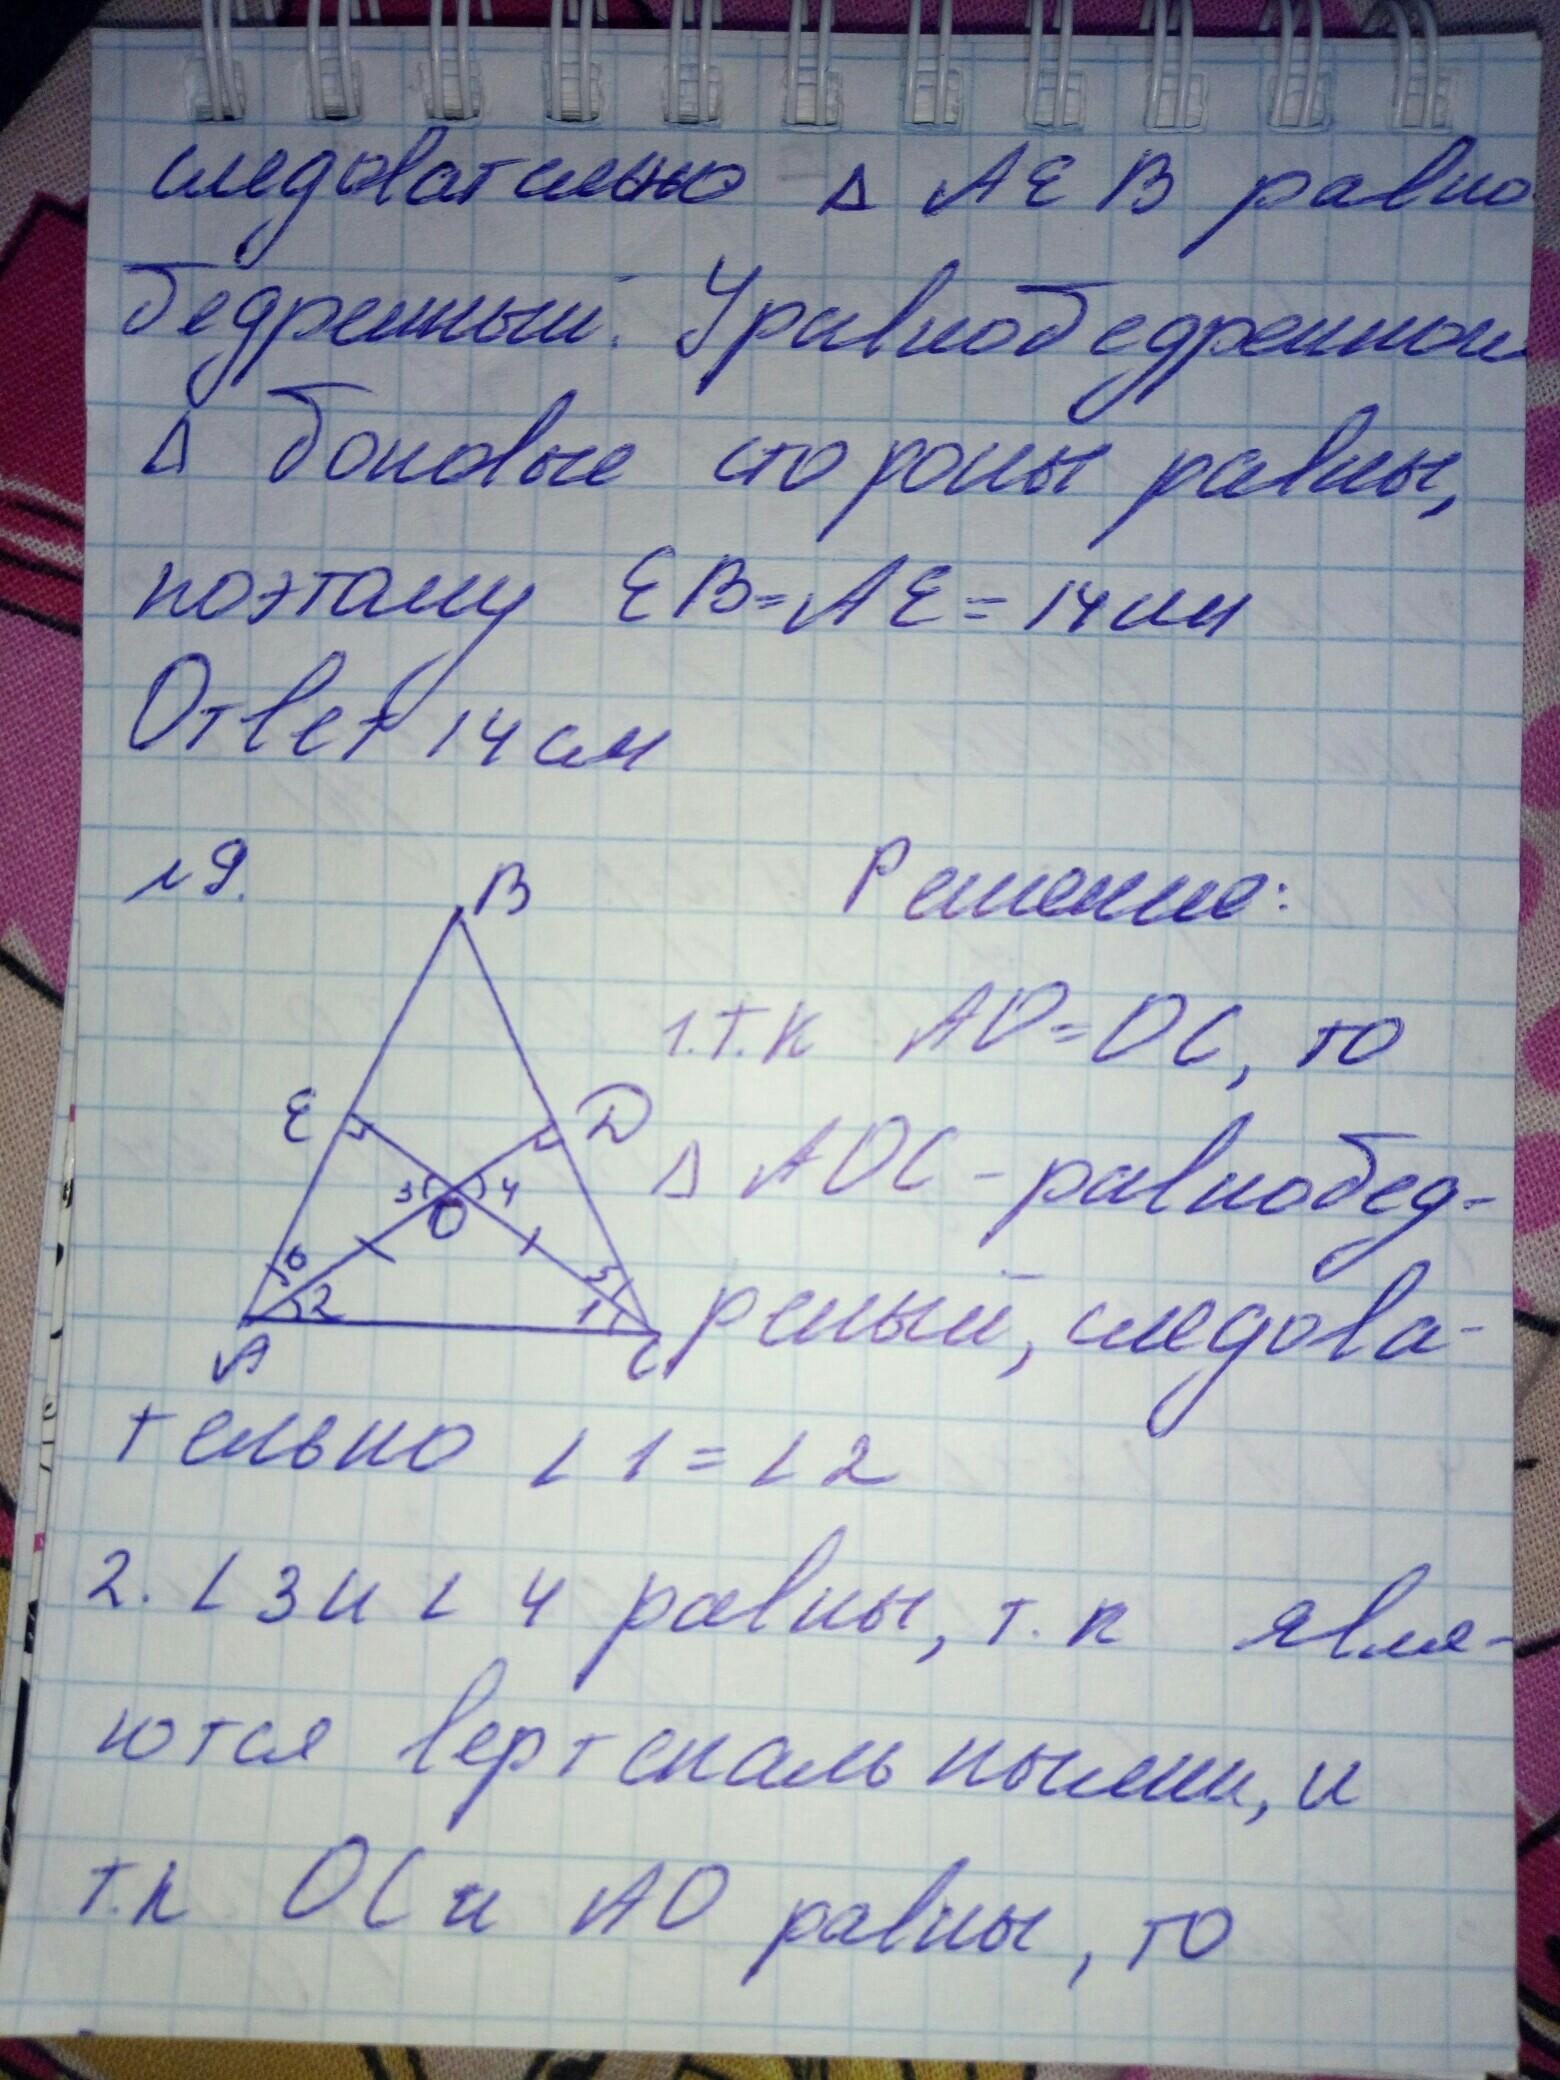 следовательно Δ AEB равно
бедренный. У равнобедренной
Δ боковые стороны равны,
поэтому EB=AE=14см
Ответ 14 см
№9.
B
Решение:
1. т.к AO=OC, то
E
D
Δ AOC - равнобед-
3
4
O
6
5
2
1
реный, следова-
A
C
тельно ∠1=∠2
2. ∠3 и ∠4 равны, т.к явля-
ются вертекальными, и
т.к OC и AO равны, то